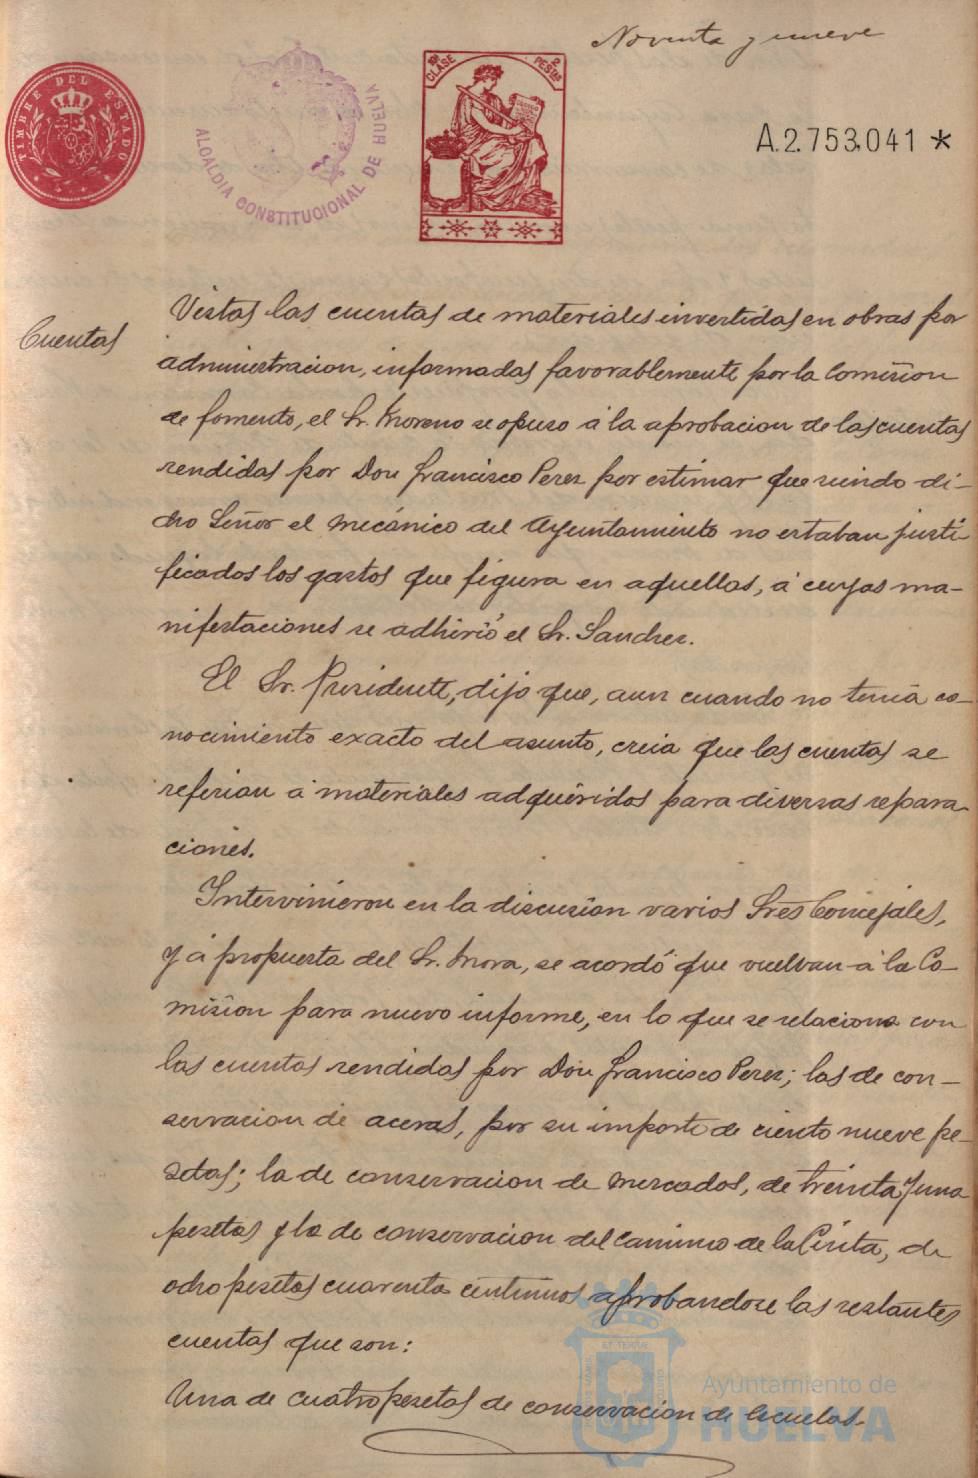 Noventa y nueve
TIMBRE DEL ESTADO
ALCALDIA CONSTITUCIONAL DE HUELVA
10ª CLASE 2 PESTAS
A.2.753,041 *
Cuentas
Vistas las cuentas de materiales invertidas en obras por
administracion, informadas favorablemente por la Comision
de fomento, el Sr. Moreno se opuso á la aprobacion de las cuentas
rendidas por Don Francisco Perez por estimar que siendo di-
cho Señor el mecánico del Ayuntamiento no estaban justi-
ficados los gastos que figura en aquellas, á cuyas ma-
nifestaciones se adhirió el Sr. Sanchez.
El Sr. Presidente, dijo que, aun cuando no tenia co-
nocimiento exacto del asunto, creia que las cuentas se
referian á materiales adquiridos para diversas repara-
ciones.
Intervinieron en la discusion varios Sres Concejales,
y á propuesta del Sr. Mora, se acordó que vuelvan á la Co-
mision para nuevo informe, en lo que se relaciona con
las cuentas rendidas por Don Francisco Perez; las de con-
servacion de aceras, por su importe de ciento nueve pe-
setas; la de conservacion de mercados, de treinta y una
pesetas y la de conservacion del camino de la Cinta, de
ocho pesetas cuarenta centimos aprobandose las restantes
cuentas que son:
Una de cuatro pesetas de conservacion de escuelas.
Ayuntamiento de
HUELVA